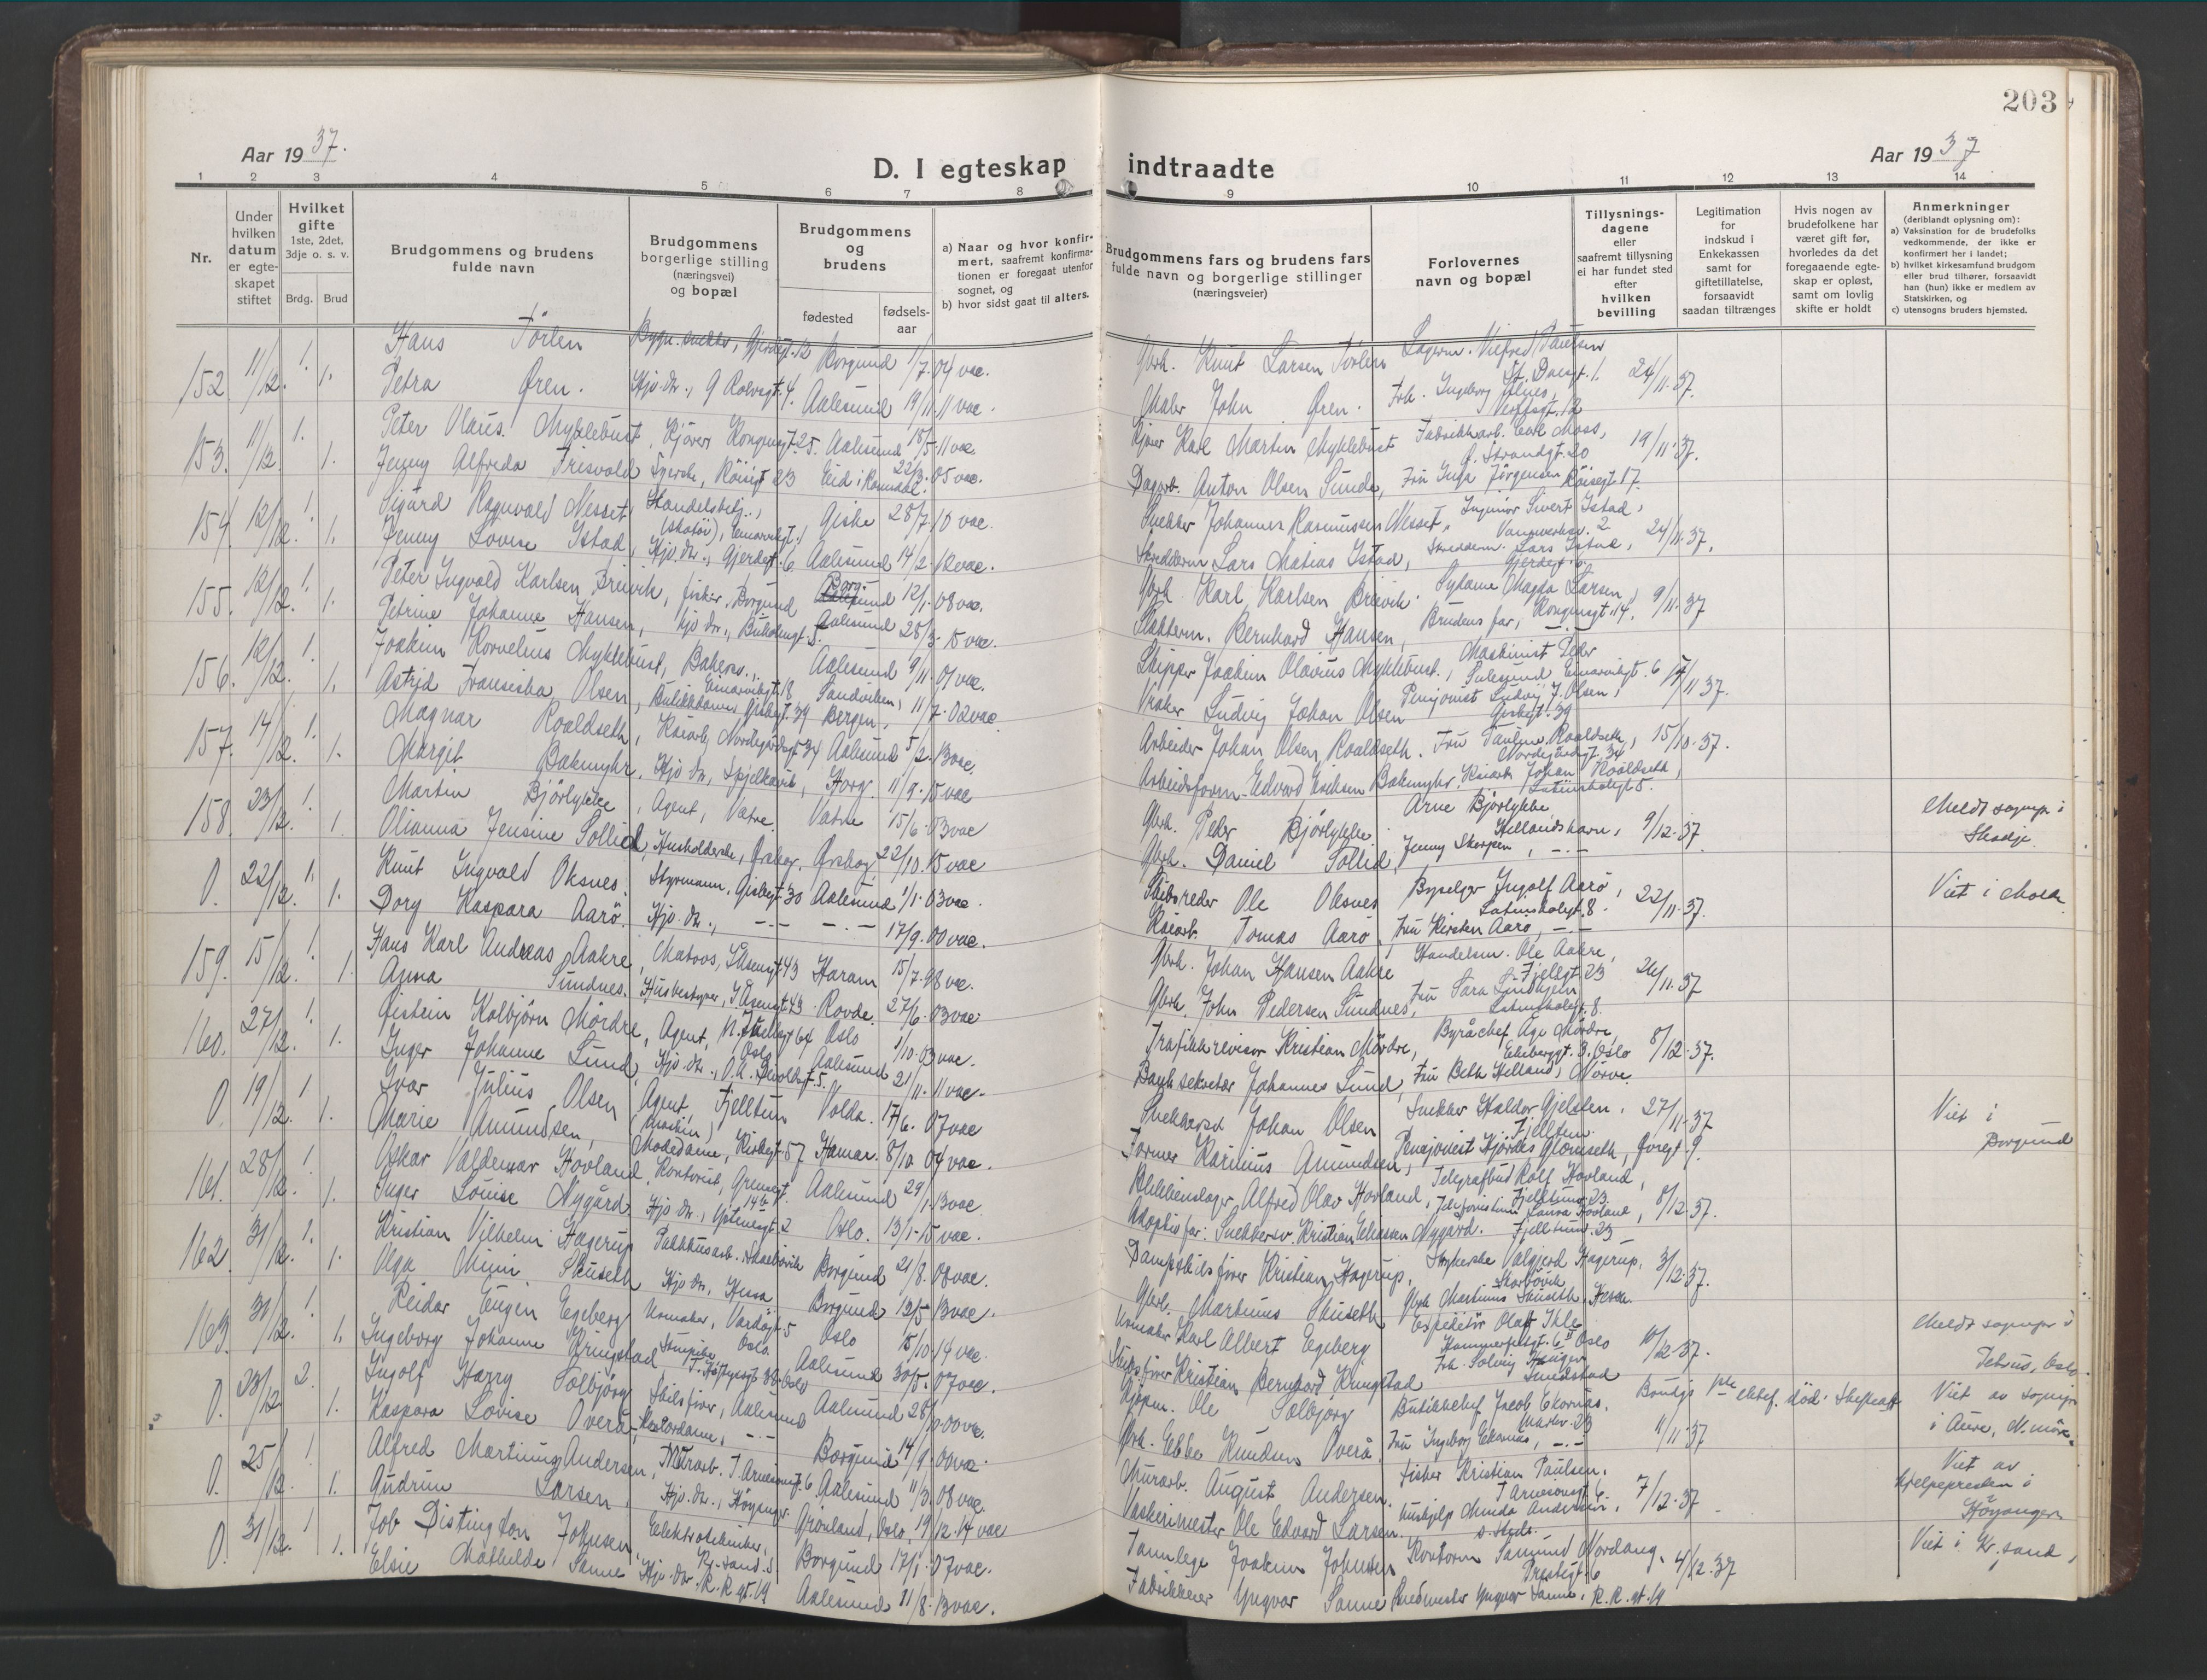 203
Aar 1937.
D. I egteskap indtraadte
Aar 1937
1 2 3 4 5 6 7 8 9 10 11 12 13 14
Nr.
Under hvilken datum er egteskapet stiftet
Hvilket gifte 1ste, 2det, 3dje o. s. v.
Brdg. Brud
Brudgommens og brudens fulde navn
Brudgommens borgerlige stilling (næringsvei) og bopæl
Brudgommens og brudens
fødested
fødselsaar
a) Naar og hvor konfirmert, saafremt konfirmationen er foregaat utenfor sognet, og
b) hvor sidst gaat til alters.
Brudgommens fars og brudens fars fulde navn og borgerlige stillinger (næringsveier)
Forlovernes navn og bopæl
Tillysningsdagene eller saafremt tillysning ei har fundet sted efter hvilken bevilling
Legitimation for indskud i Enkekassen samt for giftetillatelse, forsaavidt saadan tiltrænges
Hvis nogen av brudefolkene har været gift før, hvorledes da det foregaaende egteskap er opløst, samt om lovlig skifte er holdt
Anmerkninger (deriblandt oplysning om):
a) Vaksination for de brudefolks vedkommende, der ikke er konfirmert her i landet;
b) hvilket kirkesamfund brudgom eller brud tilhører, forsaavidt han (hun) ikke er medlem av Statskirken, og
c) utensogns bruders hjemsted.
152 11/12. 1. Hans Tørlen Bygn.snekker, Gjerdegt. 12 Borgund 1/7.04 vac. Gbrk. Knut Larsen Tørlen Lagerm. Vilfred Paulsen
St. Davgt. 1. 24/11.37.
1. Petra Øren. Hjv. dtr., G Rolvsgt. 4. Aalesund 19/11.11 vac. Maler John Øren. Frk. Ingeborg Ulnes, Verftsgt. 12
153. 11/12. 1. Peter Olaus Myklebust, Kjører, Kongensgt. 25. Aalesund 18/5.11 vac. Kjører Karl Martin Myklebust Fabrikkarb. Carl Moss, Ø. Strandgt. 20 19/11.37.
1. Jenny Alfreda Frisvold Syerske, Røisegt 23 Eid i Romsdal. 22/3.05 vac. Dagarb. Anton Olsen Sunde, Fru Inga Jørgensen Røisegt 17.
154. 12/12. 1. Sigurd Ragnvald Nesset Handelsbetj., (skotøi), Einarvikgt. 1 Giske 28/7.10 vac. Snekker Johannes Rasmussen Nesset, Ingeniør Sivert Istad, 24/11.37.
1. Jenny Lovise Istad, Hjv. dtr., Gjerdegt. 6 Aalesund 14/2.12 vac. Skredderm Lars Matias Istad, Skredderm. Lars Istad, Gjerdegt. 6.
155. 12/12. 1. Peter Ingvald Karlsen Breivik, fisker, Borgund Borgund 12/1.08 vac. Gbrk. Karl Karlsen Breivik. Sydame Magda Larsen, Kongensgt. 14. 9/11.37
1. Petrine Johanne Hansen, hjv dtr., Buholmgt. 5. Aalesund 28/3.15 vac. Slakterm. Bernhard Hansen, Brudens far, —.—
156. 12/12. 1. Joakim Kornelius Myklebust, Bakersv., Einarvikgt. 8 Aalesund 9/11.01 vac. Skipper Joakim Olavius Myklebust, Maskinist Peder Sulesund Einarvikgt. 6 17/11 37.
1. Astrid Fransiska Olsen, Butikkdame, Giskegt. 39 Sandviken, Bergen, 11/7.02 vac Vraker Ludvig Johan Olsen Pensjonist Ludvig J. Olsen, Giskegt. 39
157. 14/12. 1. Magnar Roaldseth, Kaiarb. Nordregårdsgt 34 Aalesund 5/2.13 vac. Arbeider Johan Olsen Roaldseth. Fru Pauline Roaldseth, Nordregårdsgt. 34 15/10.37.
1. Margit Bakmyhr, Hjv dtr., Spjelkavik, Horg. 11/9.15 vac Arbeidsform. Edvard Eriksen Bakmyhr. Kaiarb Johan Roaldseth, Latinskolegt 5.
158. 23/12. 1. Martin Bjørlykke, Agent, Vatne. Vatne 15/6.03 vac Gbrk. Peder Bjørlykke Arne Bjørlykke Hellandshavn, 9/12.37. Meldt sognepr i Skodje.
1. Olianna Jensine Sollid, Husholderske, Ørskog. Ørskog 22/10.15 vac Gbrk. Daniel Sollid, Jenny Skorpen, —.—
0. 22/12. 1. Knut Ingvald Oksnes. Styrmann, Giskegt 30 Aalesund 1/1.03 vac. Skibsreder Ole Oksnes Bryselger Ingolf Aarø, Latinskolegt. 8. 22/11.37. Viet i Molde
1. Dory Kaspara Aarø Hjv. dtr., —.— —.— 17/9.00 vac. Kaiarb. Tomas Aarø, Fru Kirsten Aarø, —.—
159. 15/12. 1. Hans Karl Andreas Aakre, Matros, I. Åsengt 43 Haram 15/7.98 vac. Gbrk. Johan Hansen Aakre Handelsm. Ole Aakre, Fjellgt 23 26/11.37
1. Anna Sundnes. Husbestyrer, I. Åsengt 43. Rovde. 27/6.03 vac. Gbrk. John Pedersen Sundnes, Fru Sara Lindhjem Latinskolegt. 8.
160. 27/12. 1. Øistein Kolbjørn Mørdre, Agent, Oslo Oslo 1/10.03 vac. Trafikkrevisor Kristian Mørdre, Byråchef Åge Mørdre, Ekeberggt. 3. Oslo 8/12.37.
1. Inger Johanne Lund, Hjv. dtr., O. A. Devoldsgt. 5. Aalesund 21/11.11 vac. Banksekretær Johannes Lund, Fru Beth Helland, Nørve.
0. 19/12. 1 Ivar Julius Olsen Agent, (maskin) Fjelltun Volda. 17/6.07 vac Snekkersv Johan Olsen Snekker Haldor Gjelsten, Fjelltun. 27/11.37 Viet i Borgund
1. Marie Amundsen, Motedame, Kirkegt. 57 Hamar. 8/10 04 vac. Former Karinius Amundsen, Pensjonist Hjørdis Glomseth, Øvregt. 9.
161. 28/12. 1. Oskar Valdemar Hovland, Kontorist, Grensegt. 14 b Aalesund 29/1.13 vac. Blikkenslager Alfred Olav Hovland, Telegrafbud Rolf Hovland, Fjelltun. 23 8/12.37.
1. Inger Louise Nygård Hjv dtr., Ystenesgt. 2 Oslo. 13/1.15 vac. Adoptivfar: Snekkersv. Kristian Eliassen Nygård. Telefonistinne Laura Hovland, Fjelltun. 23
162. 31/12. 1. Kristian Vilhelm Hagerup Pakkhusarb. Skarbøvik Borgund 21/8.08 vac. Dampskibsfører Kristian Hagerup, Strykerske Valgjerd Hagerup, Skarbøvik 3/12.37.
1. Olga Mimi Skuseth Hjv dtr, Hessa Borgund 12/5 13 vac. Gbrk. Martinus Skuseth Gbrk Martinus Skuseth, Hessa.
163. 31/12. 1. Reidar Eugen Egeberg Urmaker, Vardøgt 5 Oslo. Oslo 15/10.14 vac. Urmaker Karl Albert Egeberg Expeditør Olaf Ihle Hammerfestgt. 6 II Oslo 10/12.37. Meldt sognepr i Petrus, Oslo
1. Ingeborg Johanne Kringstad Aalesund 30/5.07 vac. Skibsfører Kristian Bernhard Kringstad Frk. Solveig Haugen Sundstad
0. 23/12 2. Ingolf Harry Solbjørg Skibsfører, Aalesund Aalesund 28/10.00 vac. Skipper Ole Solbjørg Butikkchef Jacob Ekornås, 11/11.37 Brudgs 1ste ektef. død. Skifteatt. Viet av sognepr i Aure, N.møre.
1. Kaspara Lovise Overå, Kontordame, —.— Borgund 14/9.00 vac. Gbrk. Ebbe Knudsen Overå, Fru Ingeborg Ekornås, —.—
0. 25/12. 1. Alfred Martinius Andersen, Murarb. T Arnesensgt. 6 Aalesund 11/3.08 vac. Murarb. August Andersen, Fisker Kristian Paulsen, T Arnesensgt 6. 7/12.37 Viet av hjelpepresten i Høyanger
1. Gudrun Larsen, Hjv. dtr., Høyanger. Grønland, Oslo, 19/12.14 vac Vaskerimester Ole Edvard Larsen. Hushjelp Minda Andersen,
0. 31/12. 1 Job Distington Johnsen, Elektrotekniker, Kr.sand. S Borgund 17/1.07 vac. Tannlege Joakim Johnsen Kontorm Samund Nordang, Prestegt. 6 4/12.37 Viet i Kr.sand,
1. Elsie Mathilde Sanne Hjv. dtr. R. R. gt. 19 Aalesund 11/8.13 vac. Fabrikkeier Yngvar Sanne Smedmester Yngvar Sanne, R. R. gt. 19